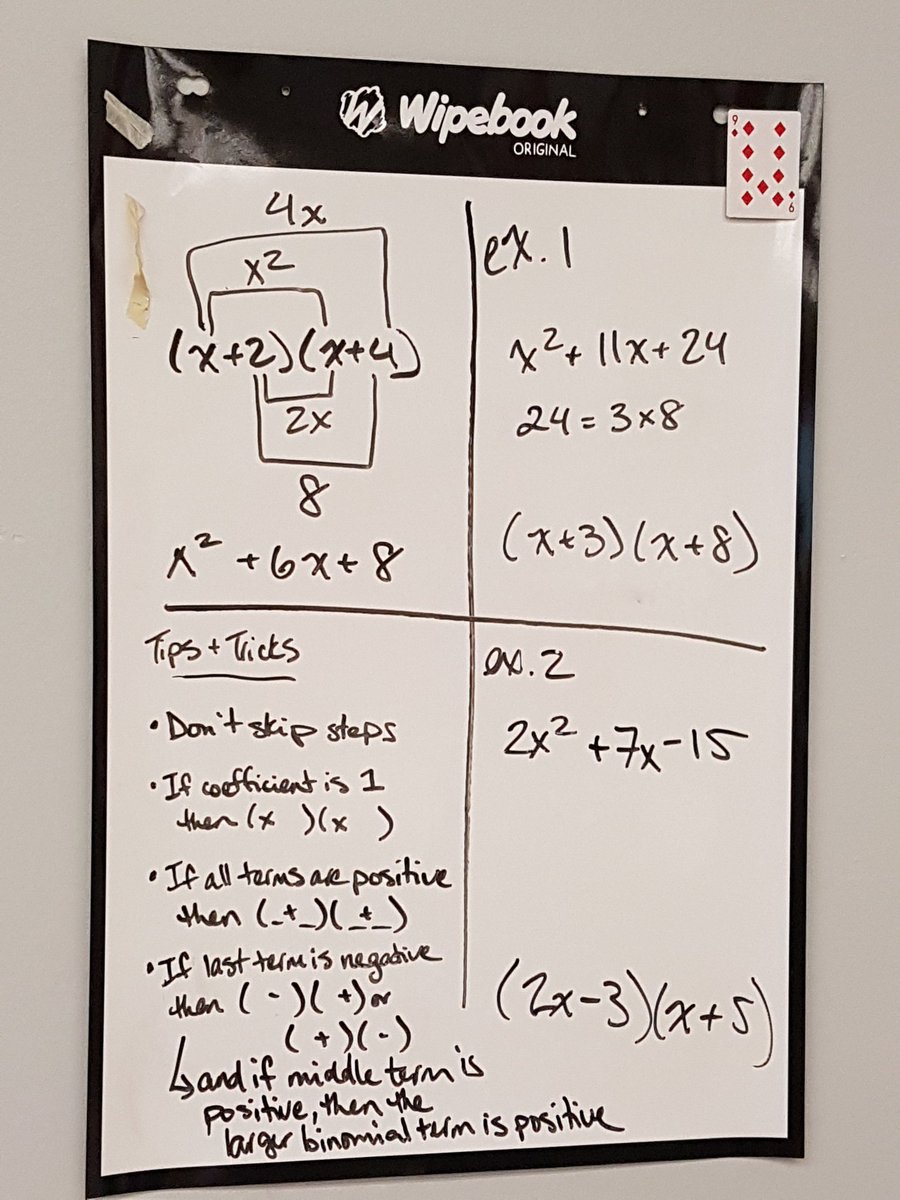 Wipebook
ORIGINAL
9
6
4x
x²
(x+2)(x+4)
2x
8
x² +6x+8
ex. 1
x²+ 11x+24
24 = 3×8
(x+3)(x+8)
Tips + Tricks
• Don't skip steps
• If coefficient is 1
then (x )(x )
• If all terms are positive
then (_+_)(_+_)
• If last term is negative
then ( - )( +) or
( + )( - )
↳ and if middle term is
positive, then the
larger binomial term is positive
ex. 2
2x² +7x-15
(2x-3)(x+5)